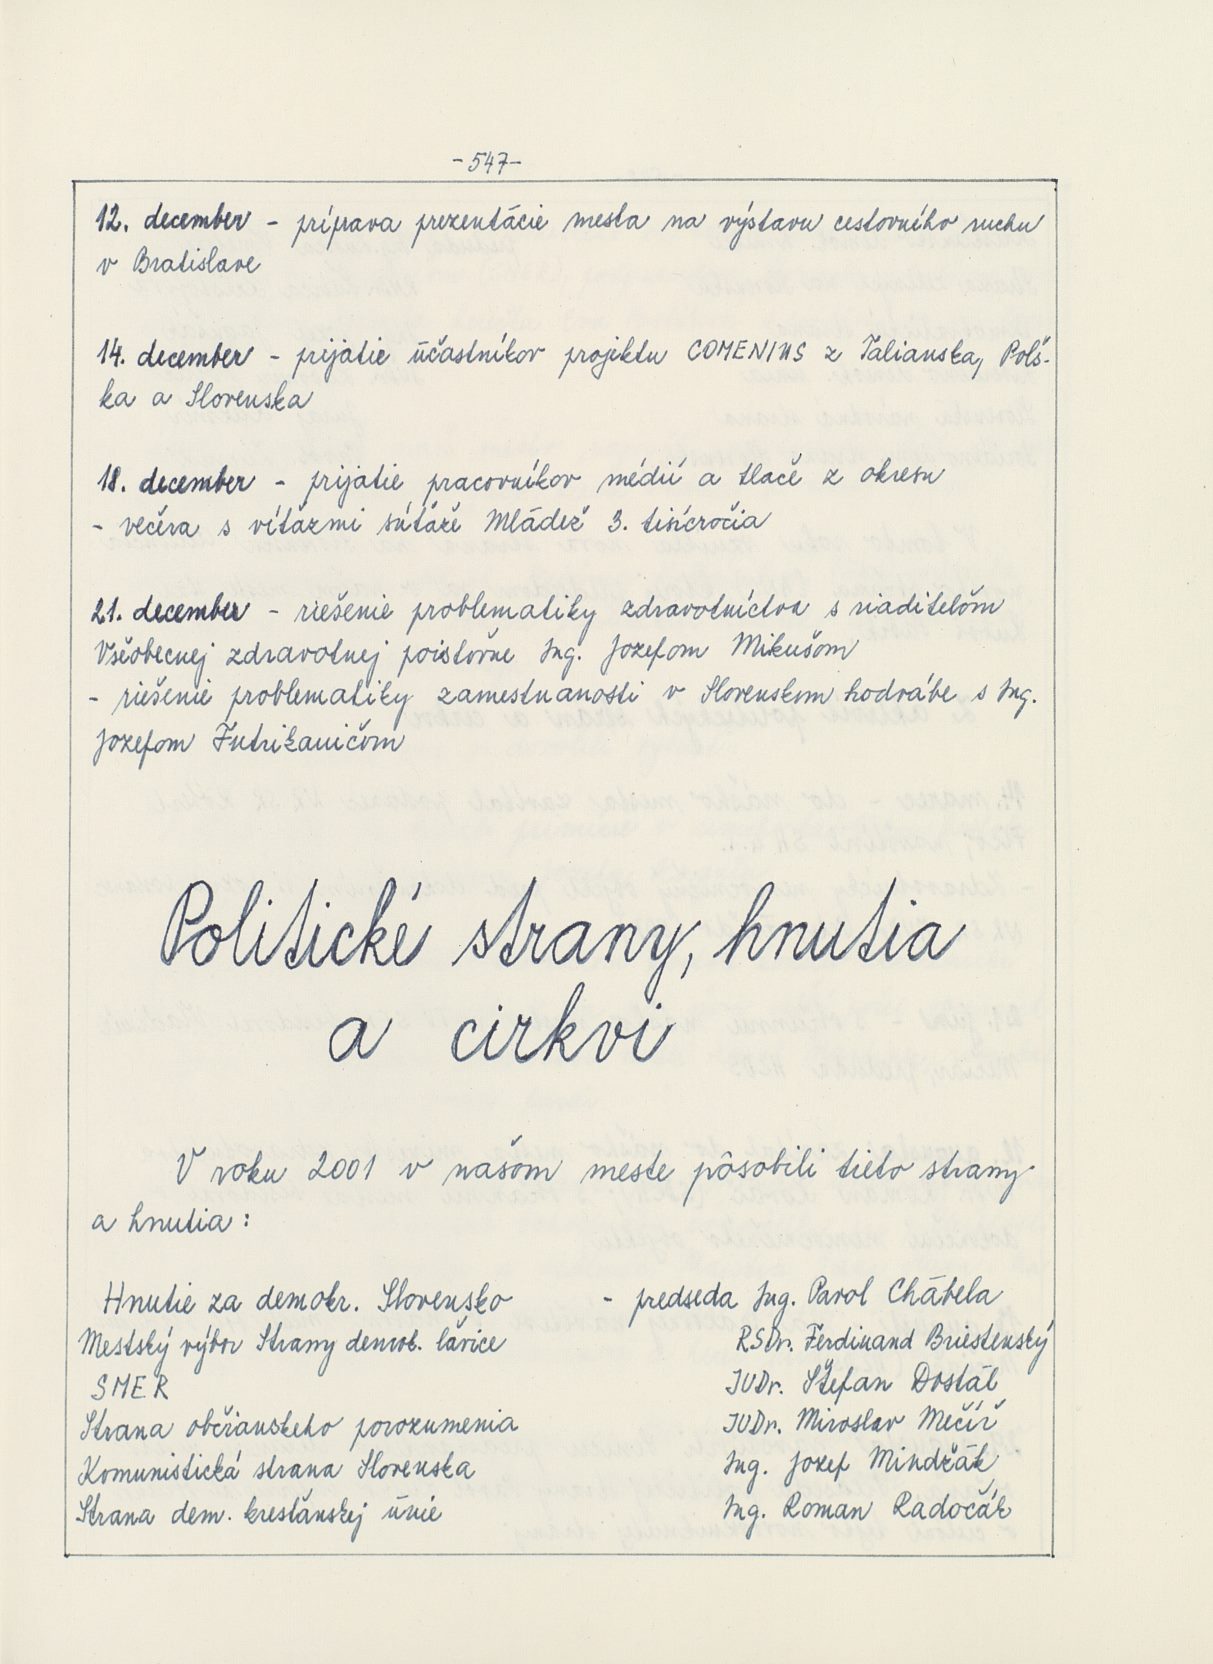 -547-
12. december - príprava prezentácie mesta na výstavu cestovného ruchu
v Bratislave
14. december - prijatie účastníkov projektu COMENIUS z Talianska, Poľs-
ka a Slovenska
18. december - prijatie pracovníkov médií a tlače z okresu
- večera s víťazmi súťaže Mládež 3. tisícročia
21. december - riešenie problematiky zdravotníctva s riaditeľom
Všeobecnej zdravotnej poisťovne Ing. Jozefom Mikušom
- riešenie problematiky zamestnanosti v Slovenskom hodvábe s Ing.
Jozefom Futrikaničom
Politické strany, hnutia
a cirkvi
V roku 2001 v našom meste pôsobili tieto strany
a hnutia:
Hnutie za demokr. Slovensko - predseda Ing. Pavol Chábela
Mestský výbor Strany demok. ľavice RSDr. Ferdinand Briestenský
SMER JUDr. Štefan Dostál
Strana občianskeho porozumenia JUDr. Miroslav Mečíř
Komunistická strana Slovenska Ing. Jozef Mindžák
Strana dem. kresťánskej únie Ing. Roman Radočák